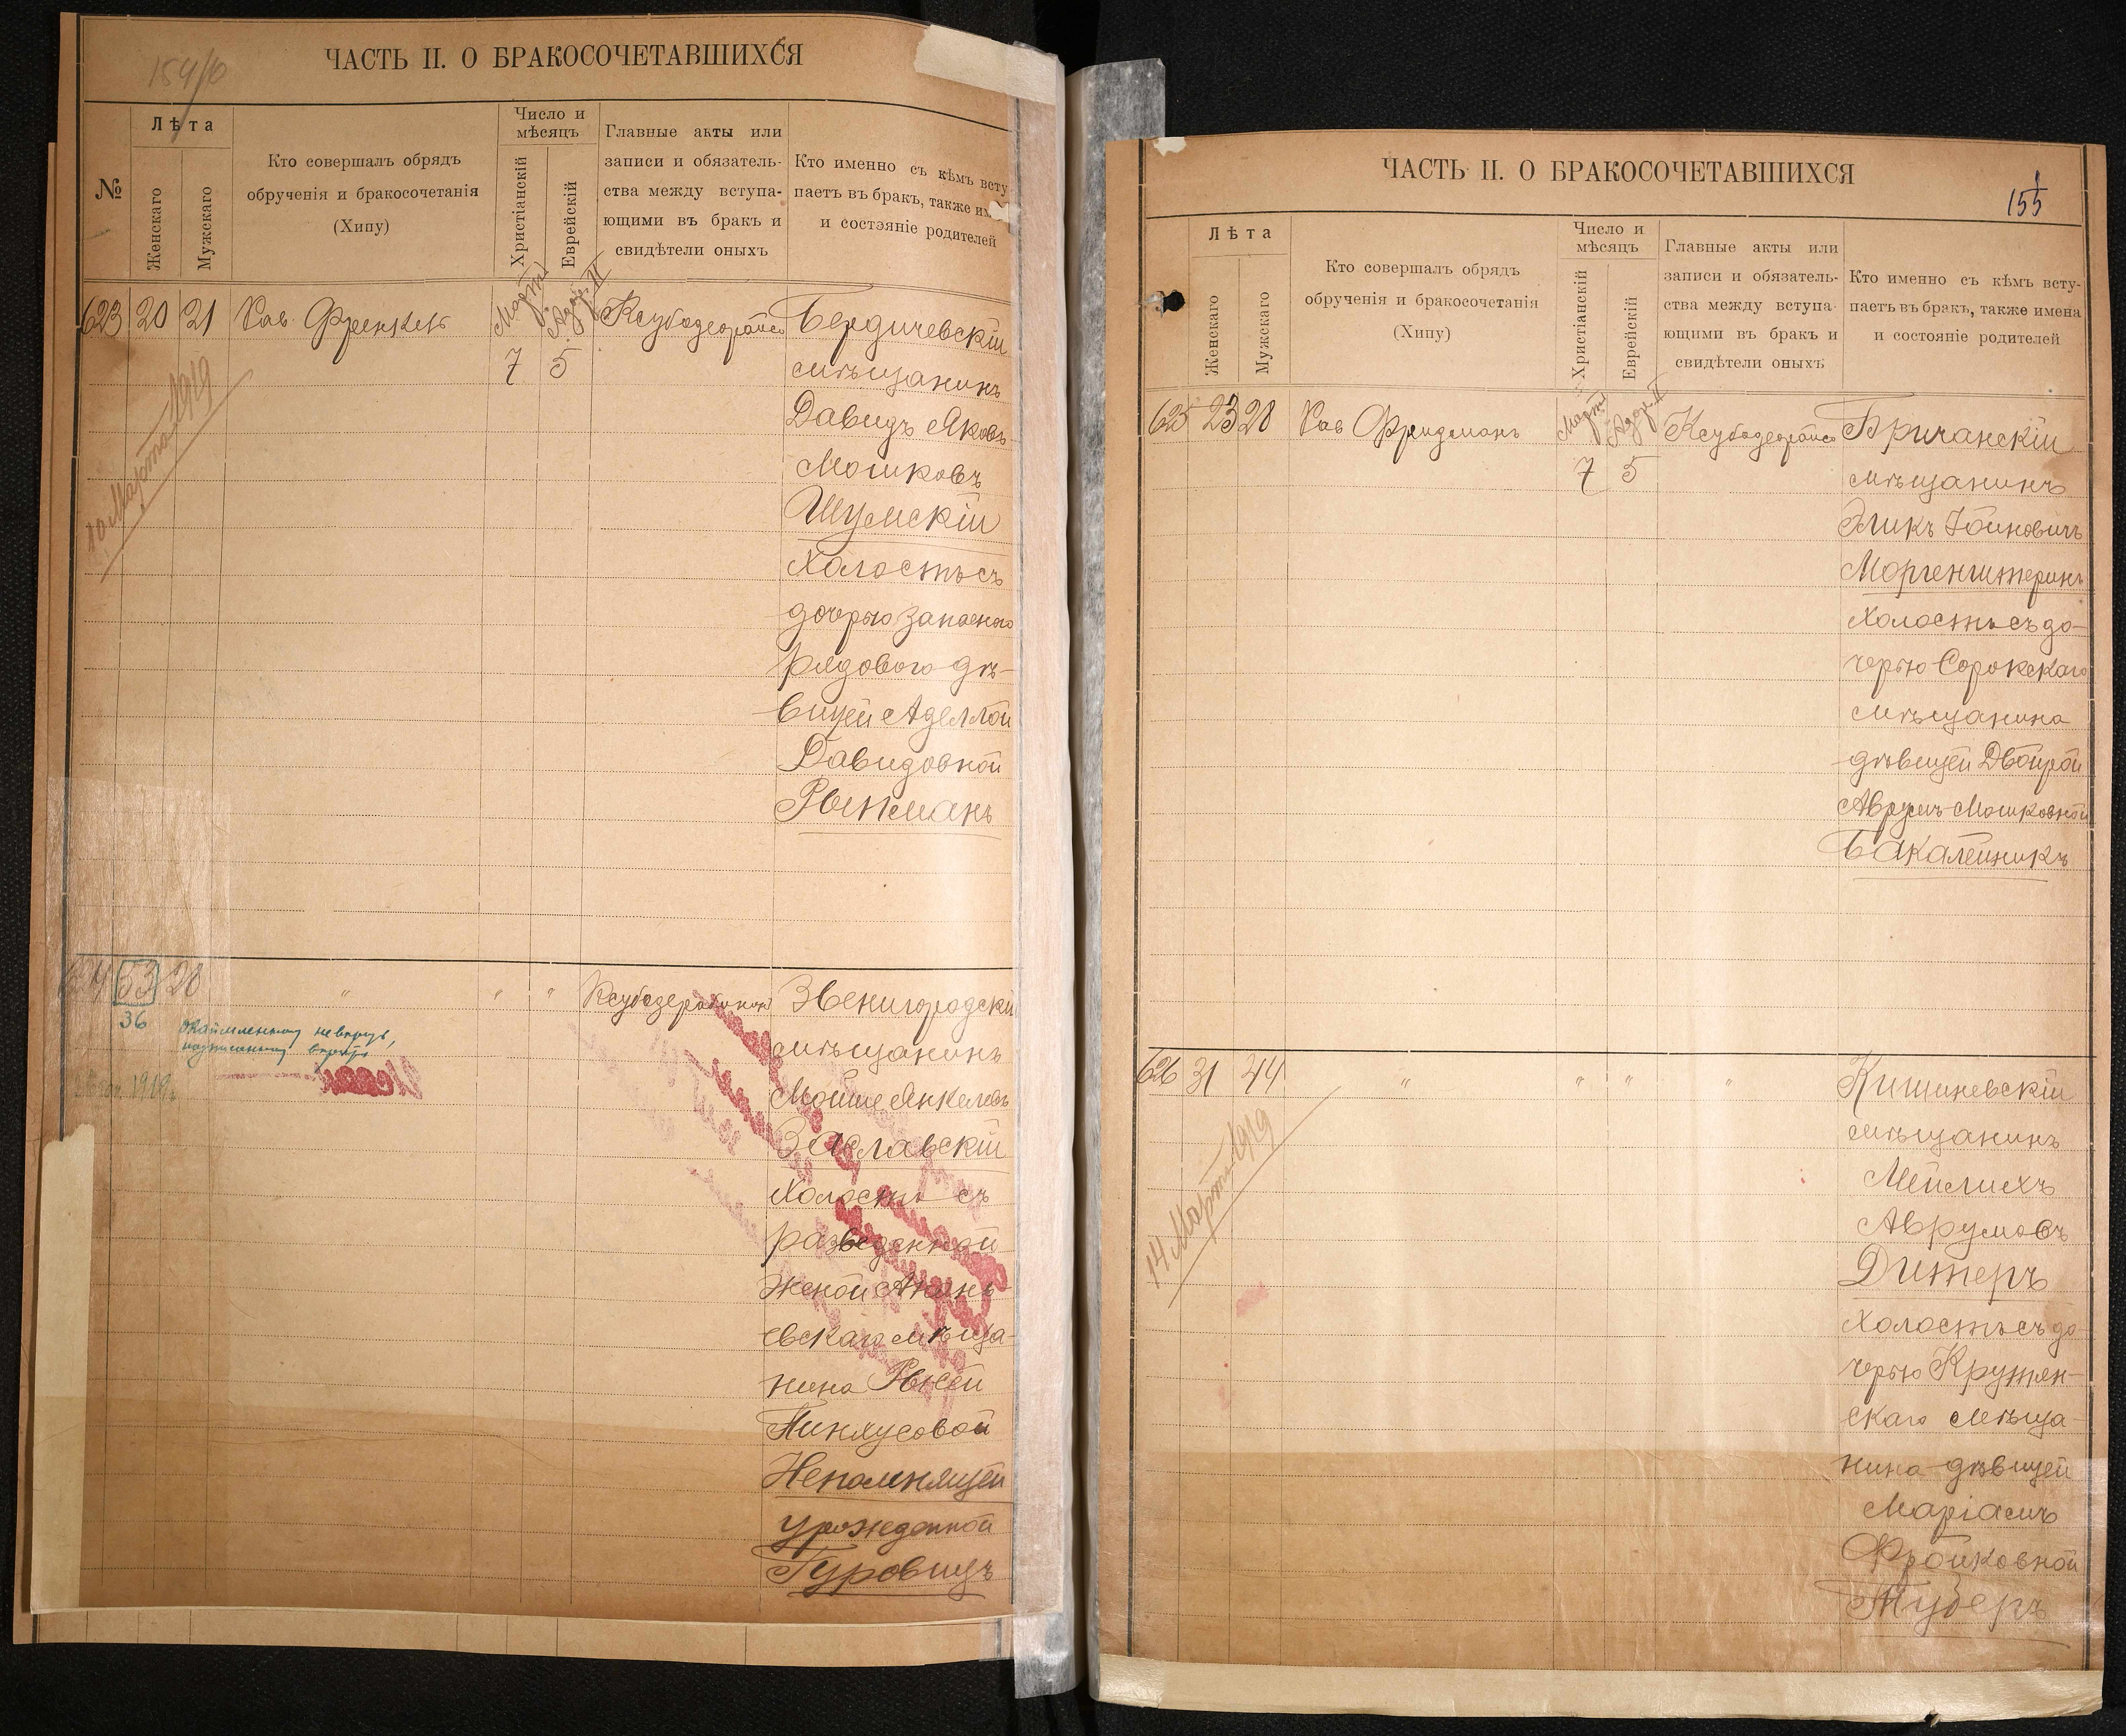 154/б
ЧАСТЬ II. О БРАКОСОЧЕТАВШИХСЯ
№
Лѣта
Женскаго
Мужскаго
Кто совершалъ обрядъ
обрученія и бракосочетанія
(Хипу)
Число и
мѣсяцъ
Христіанскій
Еврейскій
Главные акты или
записи и обязатель-
ства между вступа-
ющими въ бракъ и
свидѣтели оныхъ
Кто именно съ кѣмъ всту
паетъ въ бракъ, также им
и состояніе родителей
623 20 21 Рав. Френкель
Мартъ
Адаръ II
7 5
Бердичевскій
мѣщанинъ
Давидъ Яковъ
Мошковъ
Шумскій
Холостъ съ
дочерью запаснаго
рядового дѣ-
вицей Аделлой
Давидовной
Рынманъ
10 Марта 1919
624 53 20 " " "
36
окаймленному не вѣрить,
написанному вѣрить
1919г.
Звенигородскій
мѣщанинъ
Мойше Янкелевъ
Заславскій
Холостъ съ
разведенной
женой Ананъ-
евскаго мѣща-
нина Рысей
Пинхусовой
Непомнящей
урожденной
Гуровицъ
155
ЧАСТЬ II. О БРАКОСОЧЕТАВШИХСЯ
Лѣта
Женскаго
Мужскаго
Кто совершалъ обрядъ
обрученія и бракосочетанія
(Хипу)
Число и
мѣсяцъ
Христіанскій
Еврейскій
Главные акты или
записи и обязатель-
ства между вступа-
ющими въ бракъ и
свидѣтели оныхъ
Кто именно съ кѣмъ всту-
паетъ въ бракъ, также имена
и состояніе родителей
625 23 28 Рав Фридманъ
Мартъ
Адаръ II
7 5
Бричанскій
мѣщанинъ
Эликъ Іойновичъ
Моргенштернъ
Холостъ съ до-
черью Сорокскаго
мѣщанина
дѣвицей Двойрой
Аврумъ-Мошковной
Бакалейникъ
626 31 44 " " " "
Кишиневскій
мѣщанинъ
Мейлихъ
Аврумовъ
Дитеръ
Холостъ съ до-
черью Крутян-
скаго мѣща-
нина дѣвицей
Маріамъ
Фройковной
Туберъ
14 Марта 1919